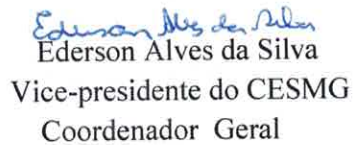 Ederson Alves da Silva
Ederson Alves da Silva
Vice-presidente do CESMG
Coordenador Geral